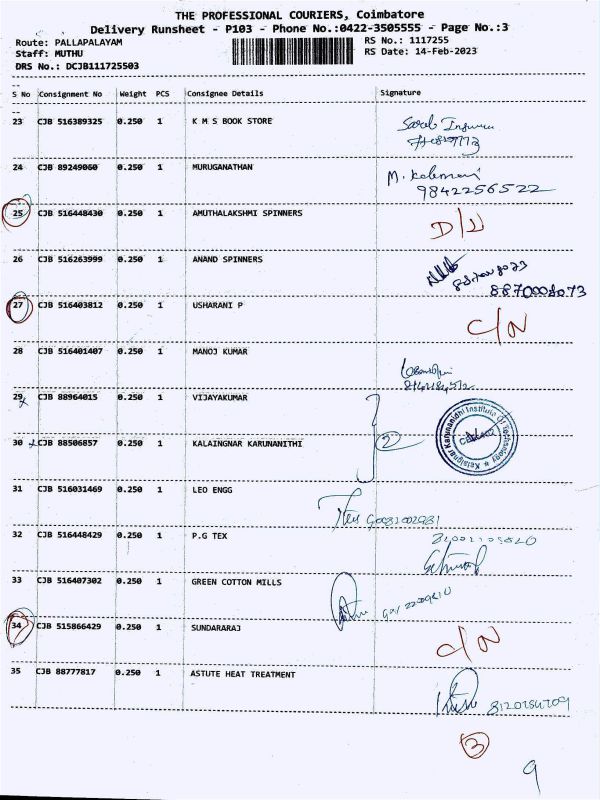 THE PROFESSIONAL COURIERS, Coimbatore
Delivery Runsheet - P103 - Phone No.:0422-3505555 - Page No.:3
Route: PALLAPALAYAM
RS No.: 1117255
Staff: MUTHU
RS Date: 14-Feb-2023
DRS No.: DCJB111725503
S No Consignment No Weight PCS Consignee Details Signature
23 CJB 516389325 0.250 1 K M S BOOK STORE
24 CJB 89249060 0.250 1 MURUGANATHAN M. 9842256522
25 CJB 516448430 0.250 1 AMUTHALAKSHMI SPINNERS
26 CJB 516263999 0.250 1 ANAND SPINNERS
27 CJB 516403812 0.250 1 USHARANI P C/N
28 CJB 516401407 0.250 1 MANOJ KUMAR
29 CJB 88964015 0.250 1 VIJAYAKUMAR
30 CJB 88506857 0.250 1 KALAINGNAR KARUNANITHI 2
Kalaignar Karunanidhi Institute of Technology
31 CJB 516031469 0.250 1 LEO ENGG
32 CJB 516448429 0.250 1 P.G TEX
33 CJB 516407302 0.250 1 GREEN COTTON MILLS
34 CJB 515866429 0.250 1 SUNDARARAJ C/N
35 CJB 88777817 0.250 1 ASTUTE HEAT TREATMENT
3
9